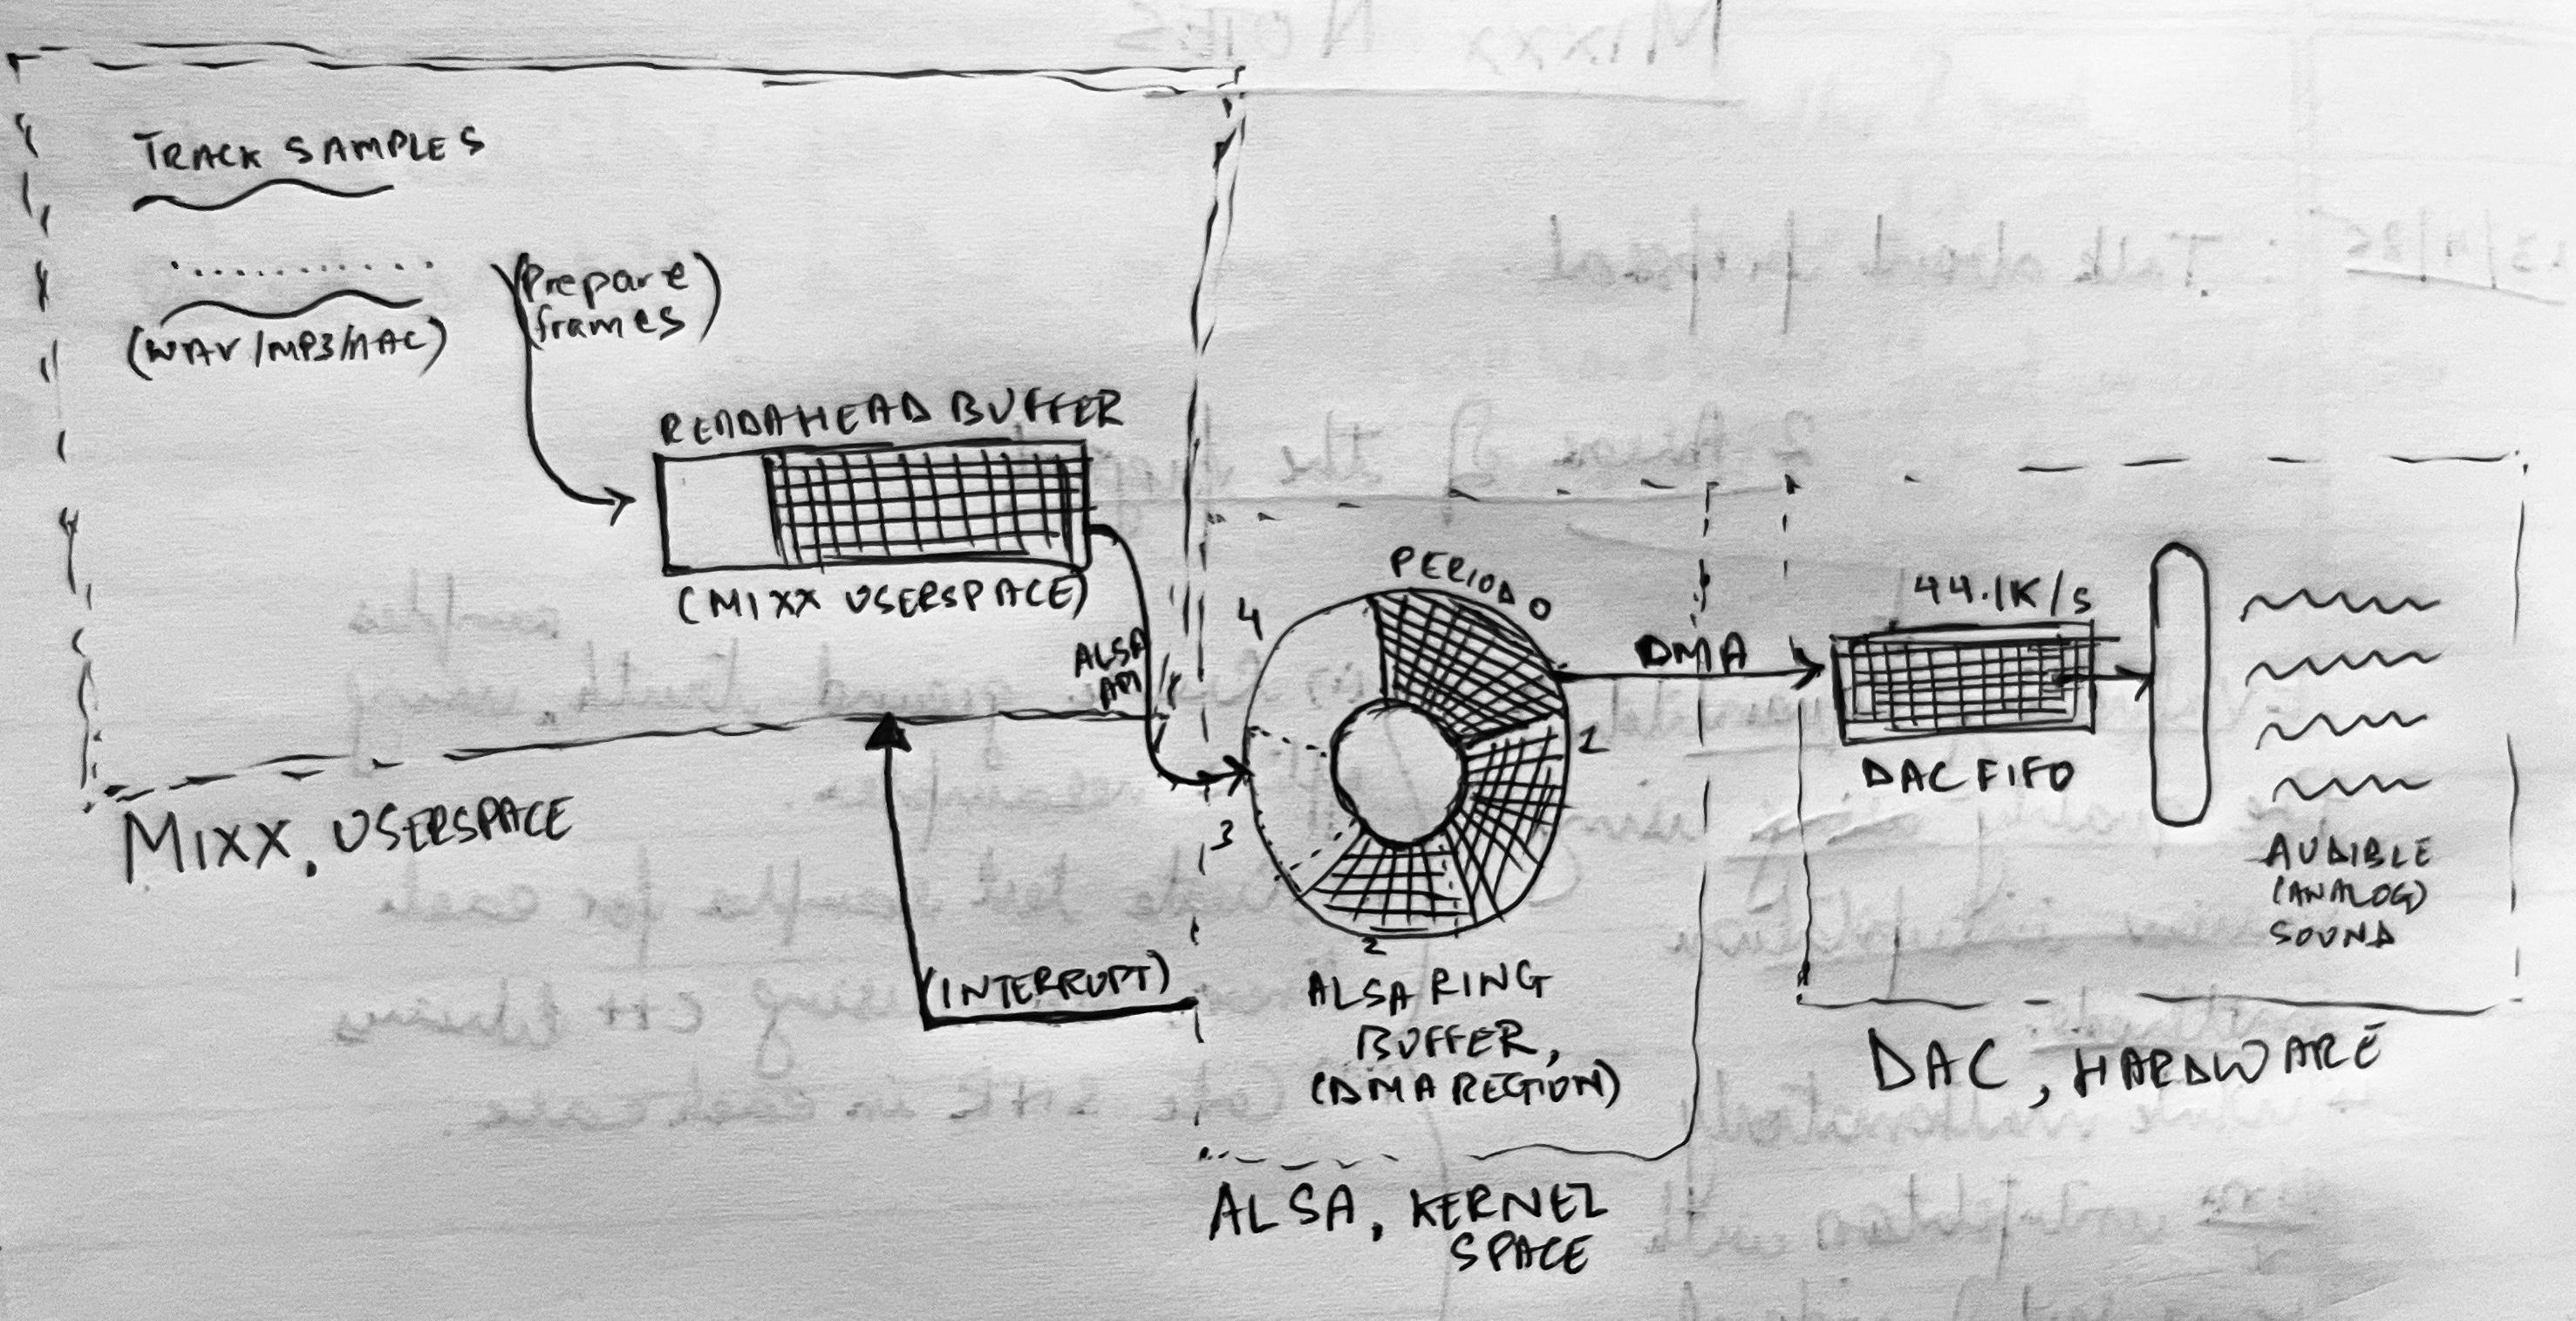 TRACK SAMPLES
(WAV/MP3/AAC)
(Prepare
frames)
READAHEAD BUFFER
(MIXX USERSPACE)
ALSA
API
MIXX, USERSPACE
(INTERRUPT)
PERIOD 0
1
2
3
4
ALSA RING
BUFFER,
(DMA REGION)
ALSA, KERNEL
SPACE
DMA
44.1K/s
DAC FIFO
AUDIBLE
(ANALOG)
SOUND
DAC, HARDWARE
MIXXX NOTES
13/4/25 : Talk about proposal